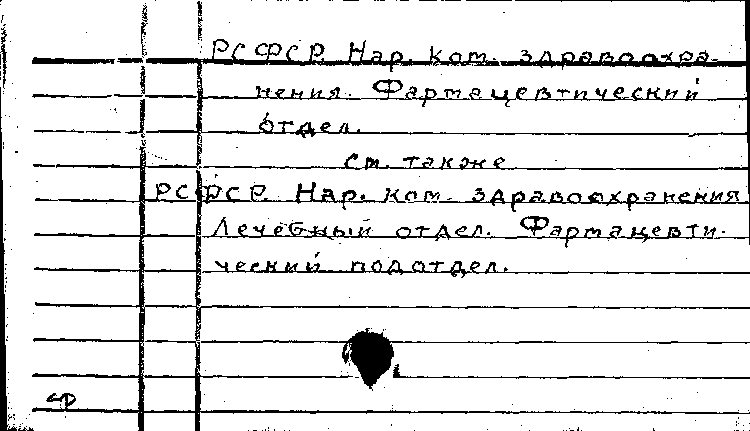 РСФСР Нар. ком. здравоохра-
нения. Фармацевтический
отдел.
см. также
РСФСР Нар. ком. здравоохранения
Лечебный отдел. Фармацевти-
ческий подотдел.